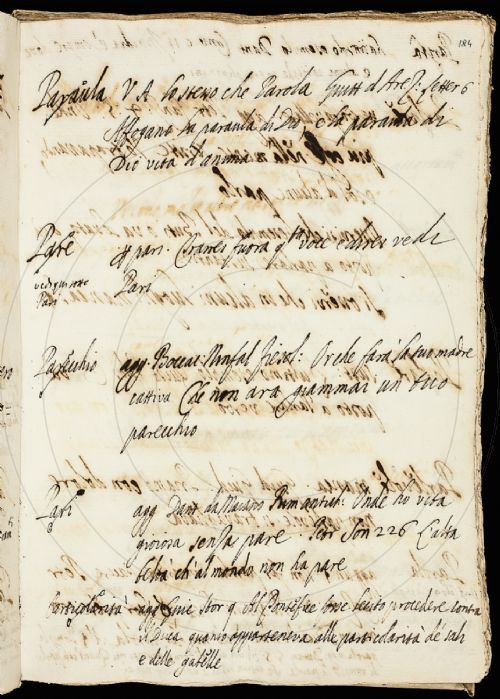 184
Paraula V.A. lo stesso che Parola Guitt d'Arez: letter 6
Affogano la paraula di Dio, e la paraula di
Dio vita d'anima
Pare per pari. Cavarei fuora q.ta voce e direi vedi
vedi
Pari Pari
Parecchio agg. Boccac: Ninfal fiesol: Or che farà la tuo madre
cattiva Che non arà giammai un tuo
parecchio
Pari agg Dant da Maiano Rim antich: Onde ho vita
gioiosa senza pare. Petr Son 226 L'alta
beltà ch'al mondo non ha pare
Particolarità agg Guic Stor 9. al Pontefice fosse lecito procedere contra
il Duca quanto apparteneva alle particolarità de sali
e delle gabelle